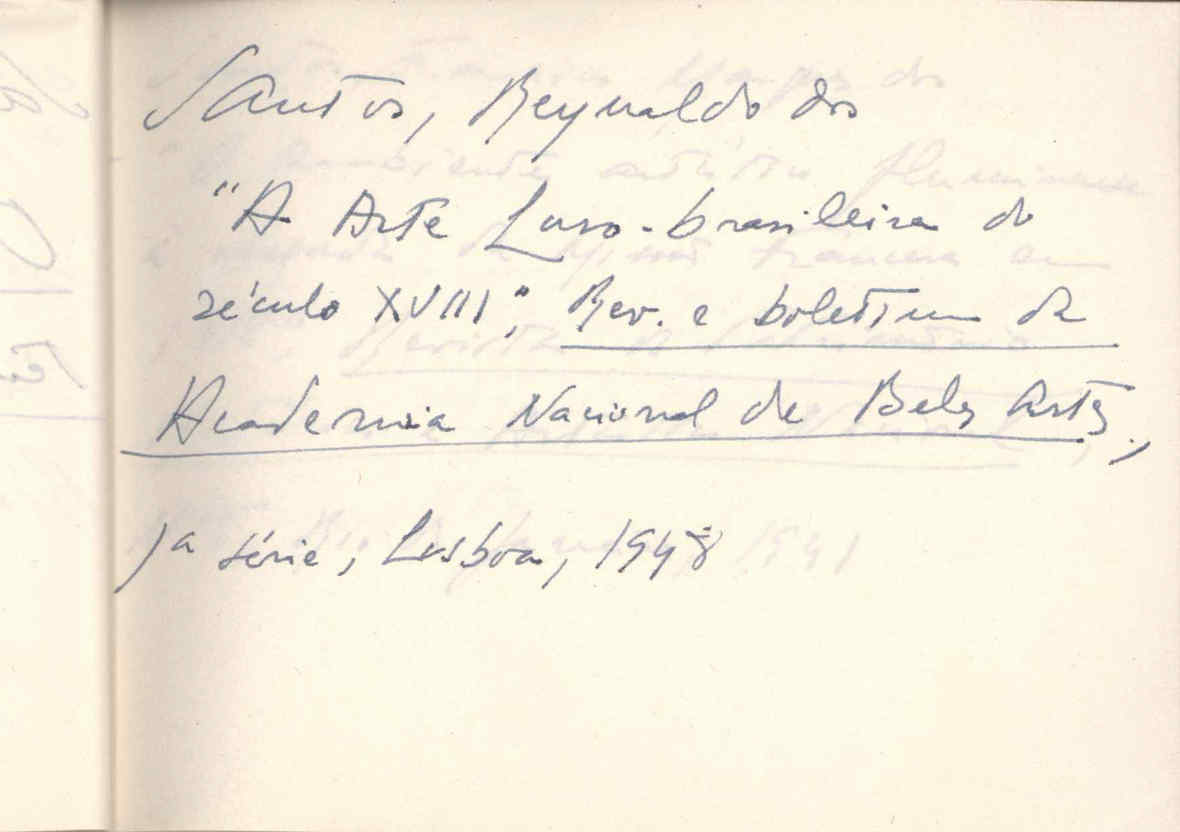 Santos, Reynaldo dos
"A Arte Luso-brasileira do
século XVIII", Rev. e boletim da
Academia Nacional de Belas Artes,
1ª série, Lisboa, 1948